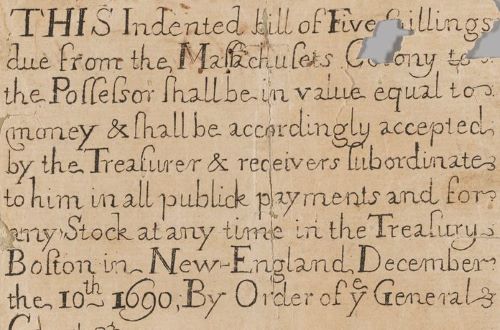 THIS Indented bill of Five Shillings
due from the Maſſachuſets Colony to
the Poſſeſſor ſhall be in value equal to
money & ſhall be accordingly accepted
by the Treaſurer & receivers ſubordinate
to him in all publick payments and for
any Stock at any time in the Treaſury
Boſton in New-England December
the 10th 1690; By Order of ye General